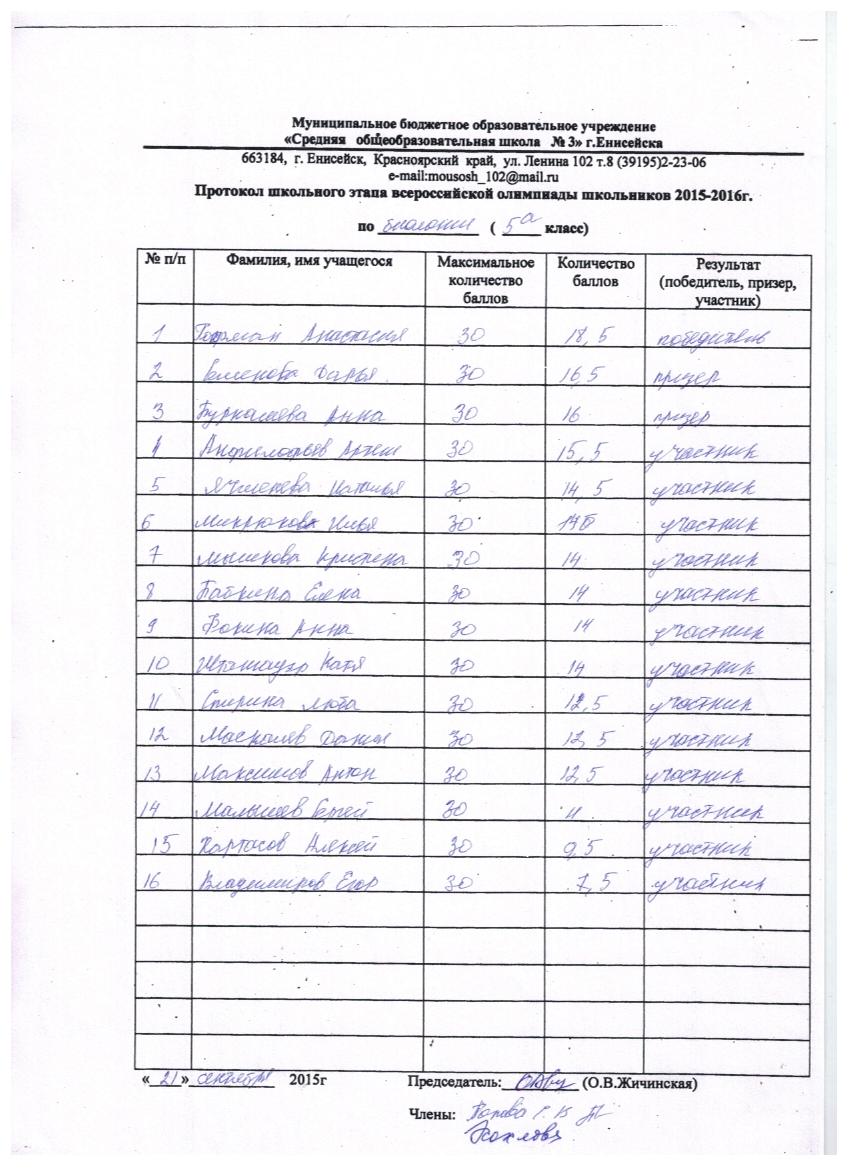 Муниципальное бюджетное образовательное учреждение
«Средняя общеобразовательная школа № 3» г.Енисейска
663184, г. Енисейск, Красноярский край, ул. Ленина 102 т.8 (39195)2-23-06
e-mail:mousosh_102@mail.ru
Протокол школьного этапа всероссийской олимпиады школьников 2015-2016г.
по биологии ( 5а класс)
№ п/п Фамилия, имя учащегося Максимальное количество баллов Количество баллов Результат (победитель, призер, участник)
1 Анастасия 30 18,5 победитель
2 Семенова Дарья 30 16,5 призер
3 Бурмашева Анна 30 16 призер
4 Анфилофьев Артем 30 15,5 участник
5 Ячменева Наталья 30 14,5 участник
6 Микрюков Илья 30 участник
7 Кристина 30 14 участник
8 Бабкина Елена 30 14 участник
9 Фокина Анна 30 14 участник
10 Катя 30 14 участник
11 Люба 30 12,5 участник
12 Данил 30 12,5 участник
13 Максимов Антон 30 12,5 участник
14 Малышев Сергей 30 11 участник
15 Картасов Алексей 30 9,5 участник
16 Владимиров Егор 30 7,5 участник
«21» сентября 2015г Председатель: (О.В.Жичинская)
Члены: